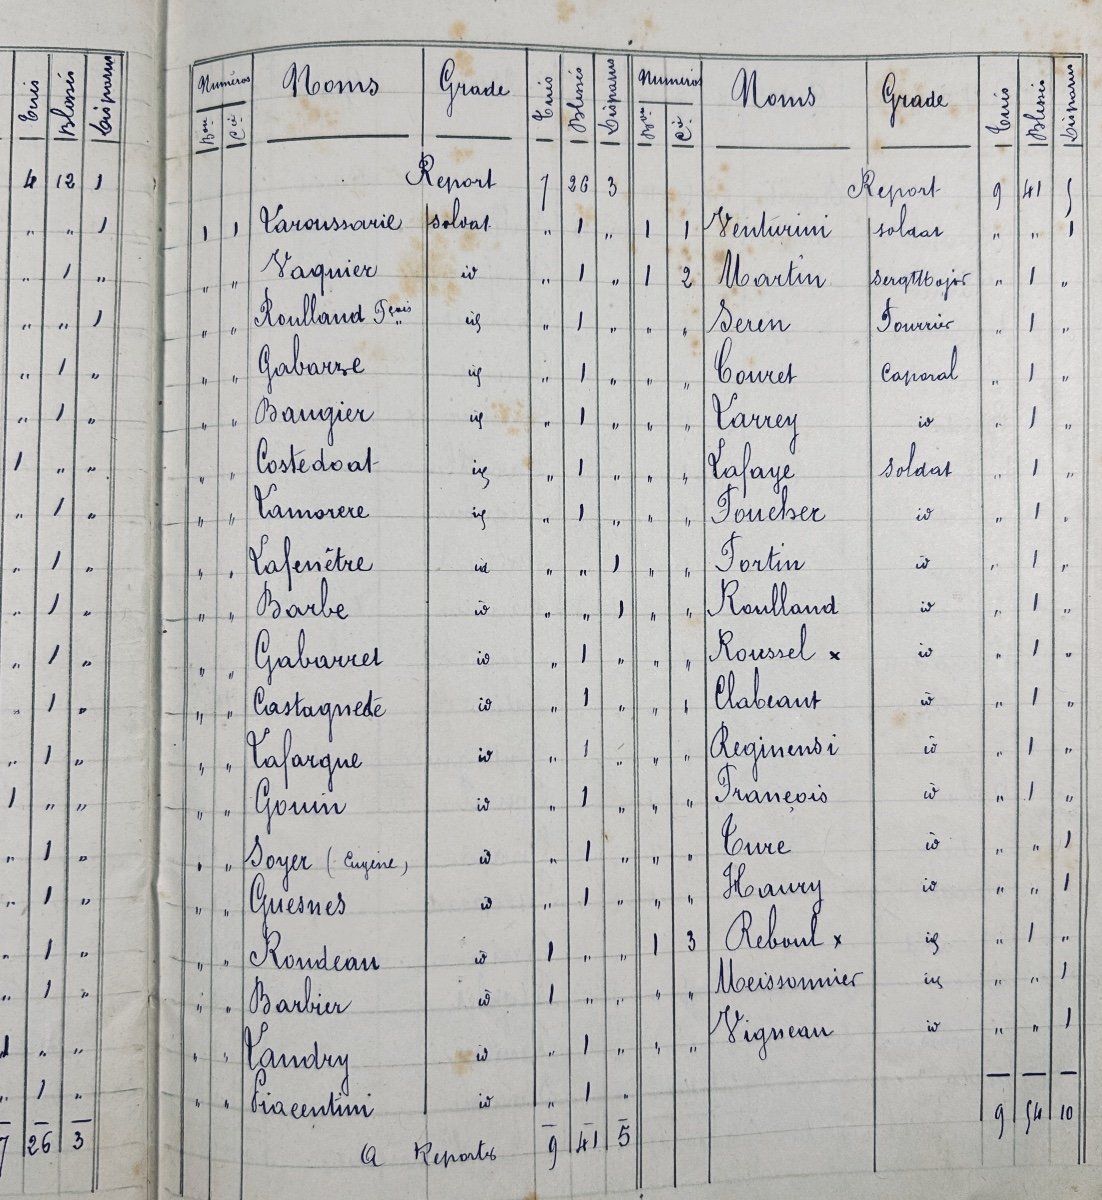 Tués Blessés Disparus
4 12 1
" " 1
" 1 "
" " 1
" 1 "
" 1 "
1 " "
" 1 "
" 1 "
" 1 "
" 1 "
" 1 "
" 1 "
1 " "
" 1 "
" 1 "
" 1 "
" 1 "
1 " "
" 1 "
7 26 3
Numéros Noms Grade Tués Blessés Disparus
Bon Cie
Report 7 26 3
1 1 Laroussarie soldat " 1 "
" " Vaquier id " 1 "
" " Roulland Fçois id " 1 "
" " Gabarre id " 1 "
" " Baugier id " 1 "
" " Costedoat id " 1 "
" " Lamorere id " 1 "
" " Lafenêtre id " " 1
" " Barbe id " " 1
" " Gabarret id " 1 "
" " Castagnede id " 1 "
" " Lafargue id " 1 "
" " Gouin id " 1 "
" " Soyer (Eugène) id " 1 "
" " Guesnes id " 1 "
" " Rondeau id 1 " "
" " Barbier id 1 " "
" " Landry id " 1 "
" " Piacentini id " 1 "
A Reporter 9 41 5
Numéros Noms Grade Tués Blessés Disparus
Bon Cie
Report 9 41 5
1 1 Venturini soldat " " 1
1 2 Martin Sergt Major " 1 "
" " Seren Fourrier " 1 "
" " Couret Caporal " 1 "
" " Larrey id " 1 "
" " Lafaye soldat " 1 "
" " Foucher id " 1 "
" " Fortin id " 1 "
" " Roulland id " 1 "
" " Roussel x id " 1 "
" " Clabeaut id " 1 "
" " Reginensi id " 1 "
" " François id " 1 "
" " Ture id " " 1
" " Haury id " " 1
1 3 Reboul x id " 1 "
" " Meissonnier id " " 1
" " Vigneau id " " 1
9 54 10